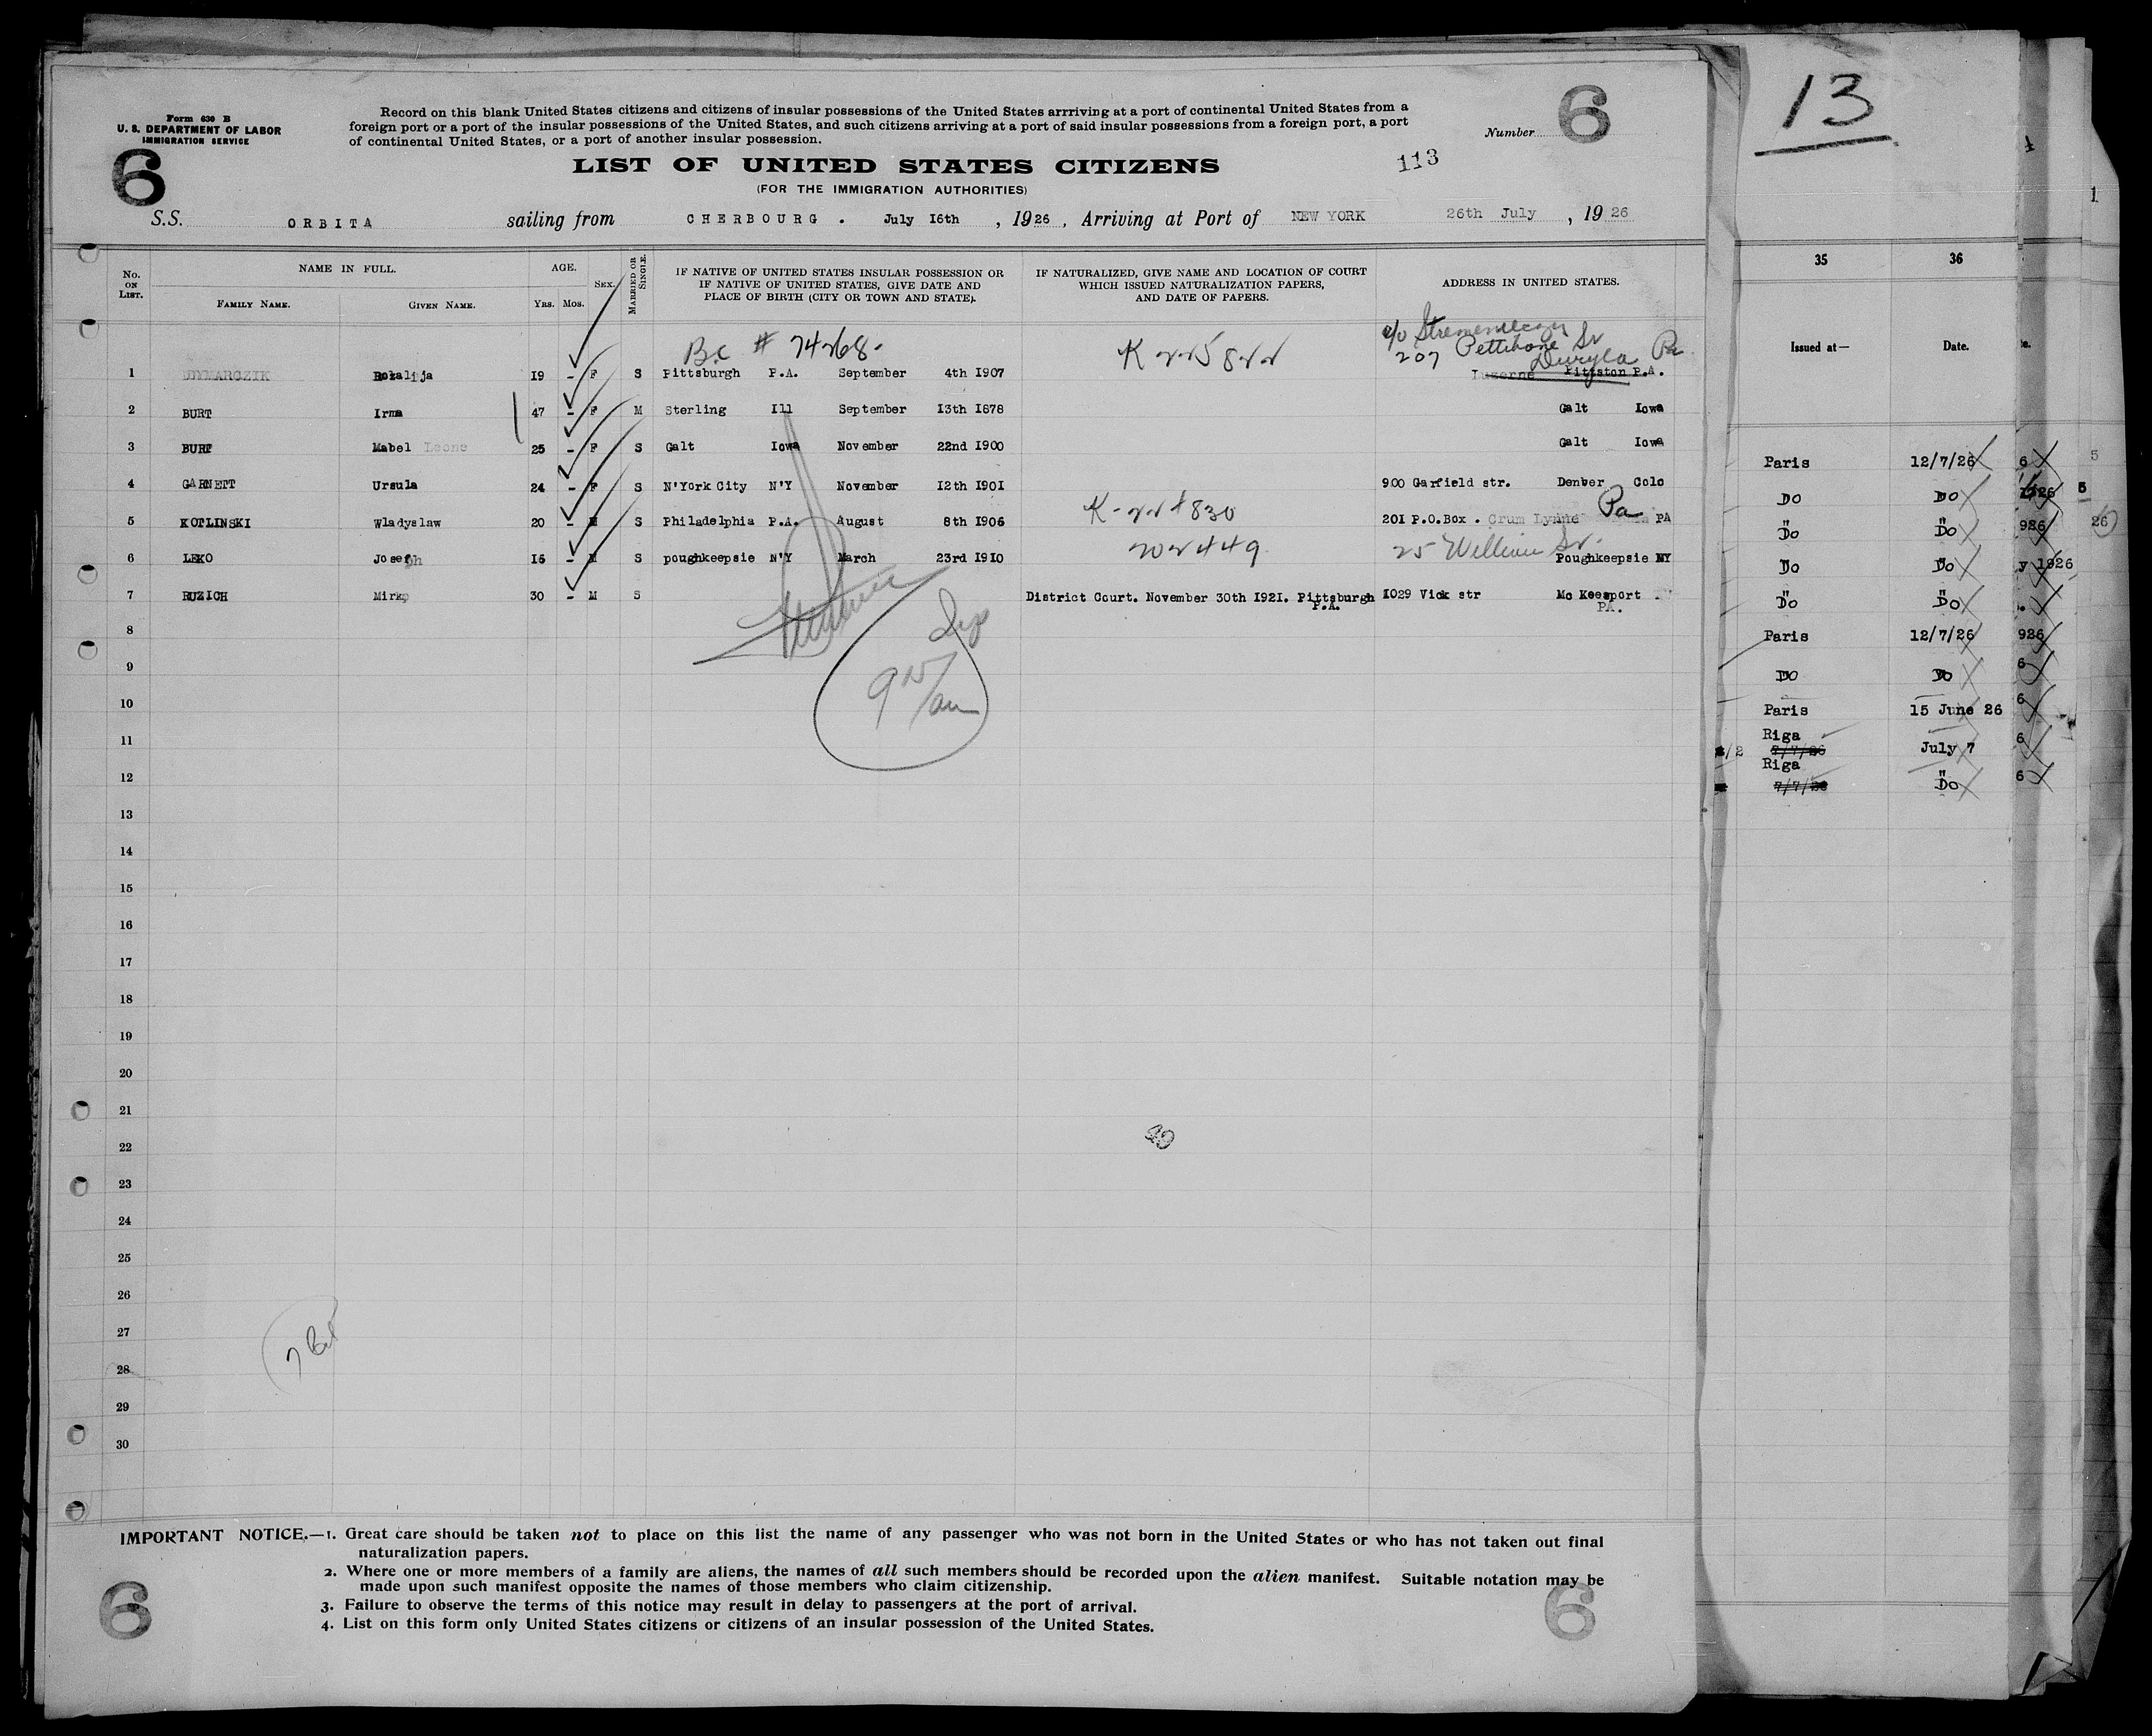 Form 630 B
U. S. DEPARTMENT OF LABOR
IMMIGRATION SERVICE
6
Record on this blank United States citizens and citizens of insular possessions of the United States arrriving at a port of continental United States from a
foreign port or a port of the insular possessions of the United States, and such citizens arriving at a port of said insular possessions from a foreign port, a port
of continental United States, or a port of another insular possession.
Number 6
LIST OF UNITED STATES CITIZENS
113
(FOR THE IMMIGRATION AUTHORITIES)
S.S. ORBITA sailing from CHERBOURG . July 16th , 1926 , Arriving at Port of NEW YORK 26th July , 1926
No. ON LIST. NAME IN FULL. FAMILY NAME. GIVEN NAME. AGE. Yrs. Mos. SEX. MARRIED OR SINGLE.
IF NATIVE OF UNITED STATES INSULAR POSSESSION OR
IF NATIVE OF UNITED STATES, GIVE DATE AND
PLACE OF BIRTH (CITY OR TOWN AND STATE).
IF NATURALIZED, GIVE NAME AND LOCATION OF COURT
WHICH ISSUED NATURALIZATION PAPERS,
AND DATE OF PAPERS.
ADDRESS IN UNITED STATES.
B.C # 74268. K 225822 c/o
207 Pettibone St
Duryea Pa
1 DYMARCZIK Rozalija 19 - F S Pittsburgh P.A. September 4th 1907 Luzerne Pittston P.A.
2 BURT Irma 47 - F M Sterling Ill September 13th 1878 Galt Iowa
3 BURT Mabel Leone 25 - F S Galt Iowa November 22nd 1900 Galt Iowa
4 GARNETT Ursula 24 - F S N'York City N'Y November 12th 1901 900 Garfield str. Denber Colo
5 KOTLINSKI Wladyslaw 20 - M S Philadelphia P.A. August 8th 1906 201 P.O.Box . Crum Lynne Pa PA
202449 25 William St.
6 LEKO Josefh 16 - M S poughkeepsie N'Y March 23rd 1910 Poughkeepsie NY
7 RUZICH Mirko 30 - M S District Court. November 30th 1921. Pittsburgh P.A. 1029 Vick str Mc Keesport PA.
8
9
10
11
12
13
14
15
16
17
18
19
20
21
22
23
24
25
26
27
28
29
30
915/am
IMPORTANT NOTICE.—1. Great care should be taken not to place on this list the name of any passenger who was not born in the United States or who has not taken out final
naturalization papers.
2. Where one or more members of a family are aliens, the names of all such members should be recorded upon the alien manifest. Suitable notation may be
made upon such manifest opposite the names of those members who claim citizenship.
3. Failure to observe the terms of this notice may result in delay to passengers at the port of arrival.
4. List on this form only United States citizens or citizens of an insular possession of the United States.
6
6
13
35 36
Issued at— Date.
Paris 12/7/26
DO DO
Do Do
Do Do
Do Do
Paris 12/7/26
DO DO
Paris 15 June 26
Riga
7/7/26 July 7
Riga
7/7/26 Do